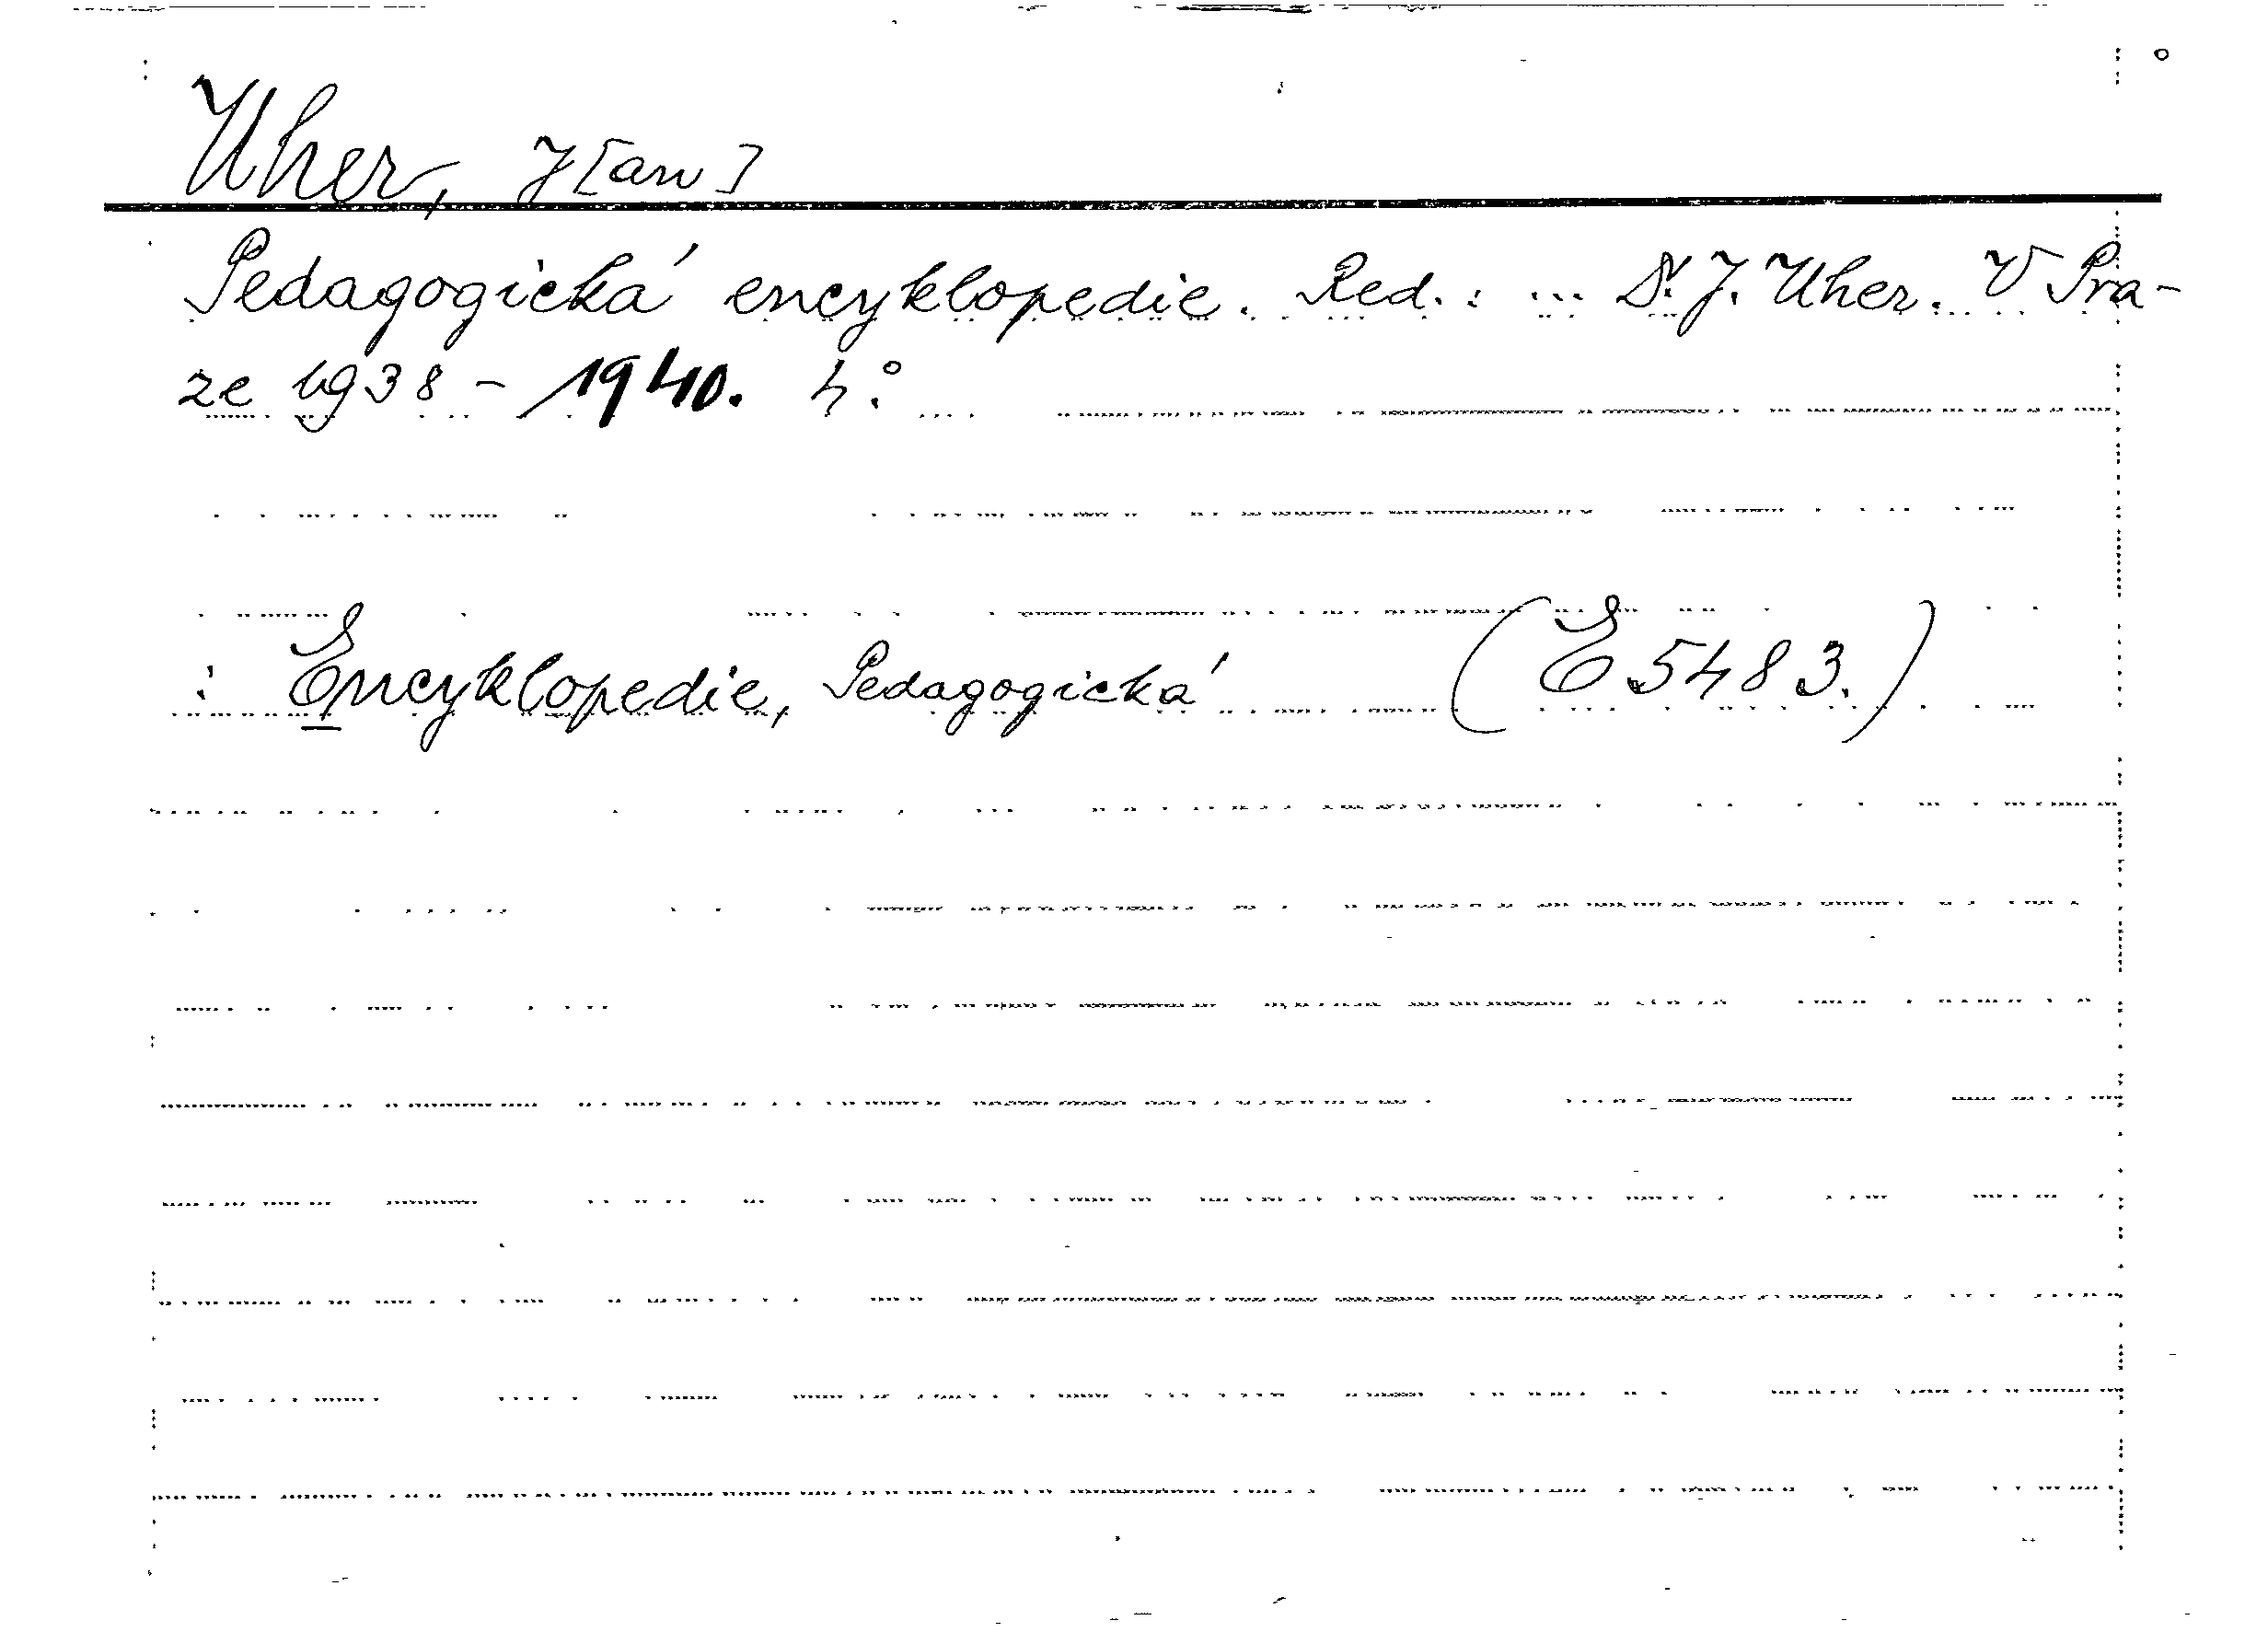 Uher, J[an]
Pedagogická encyklopedie. Red.: ... Dr. J. Uher. V Pra-
ze 1938 - 1940. 4°.
: Encyklopedie, Pedagogická (E 5483.)